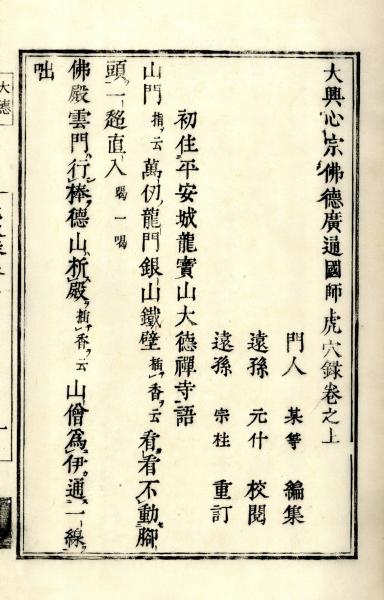 大興心宗佛德廣通國師虎穴錄卷之上
門人 某等 編集
遠孫 元什 校閱
遠孫 宗桂 重訂
初住平安城龍寳山大德禪寺語
山門指云萬仞龍門銀山鐵壁插香云看看不動腳
頭一趍直入喝一喝
佛殿雲門行棒德山拆殿插香云山僧爲伊通一線
咄
大德